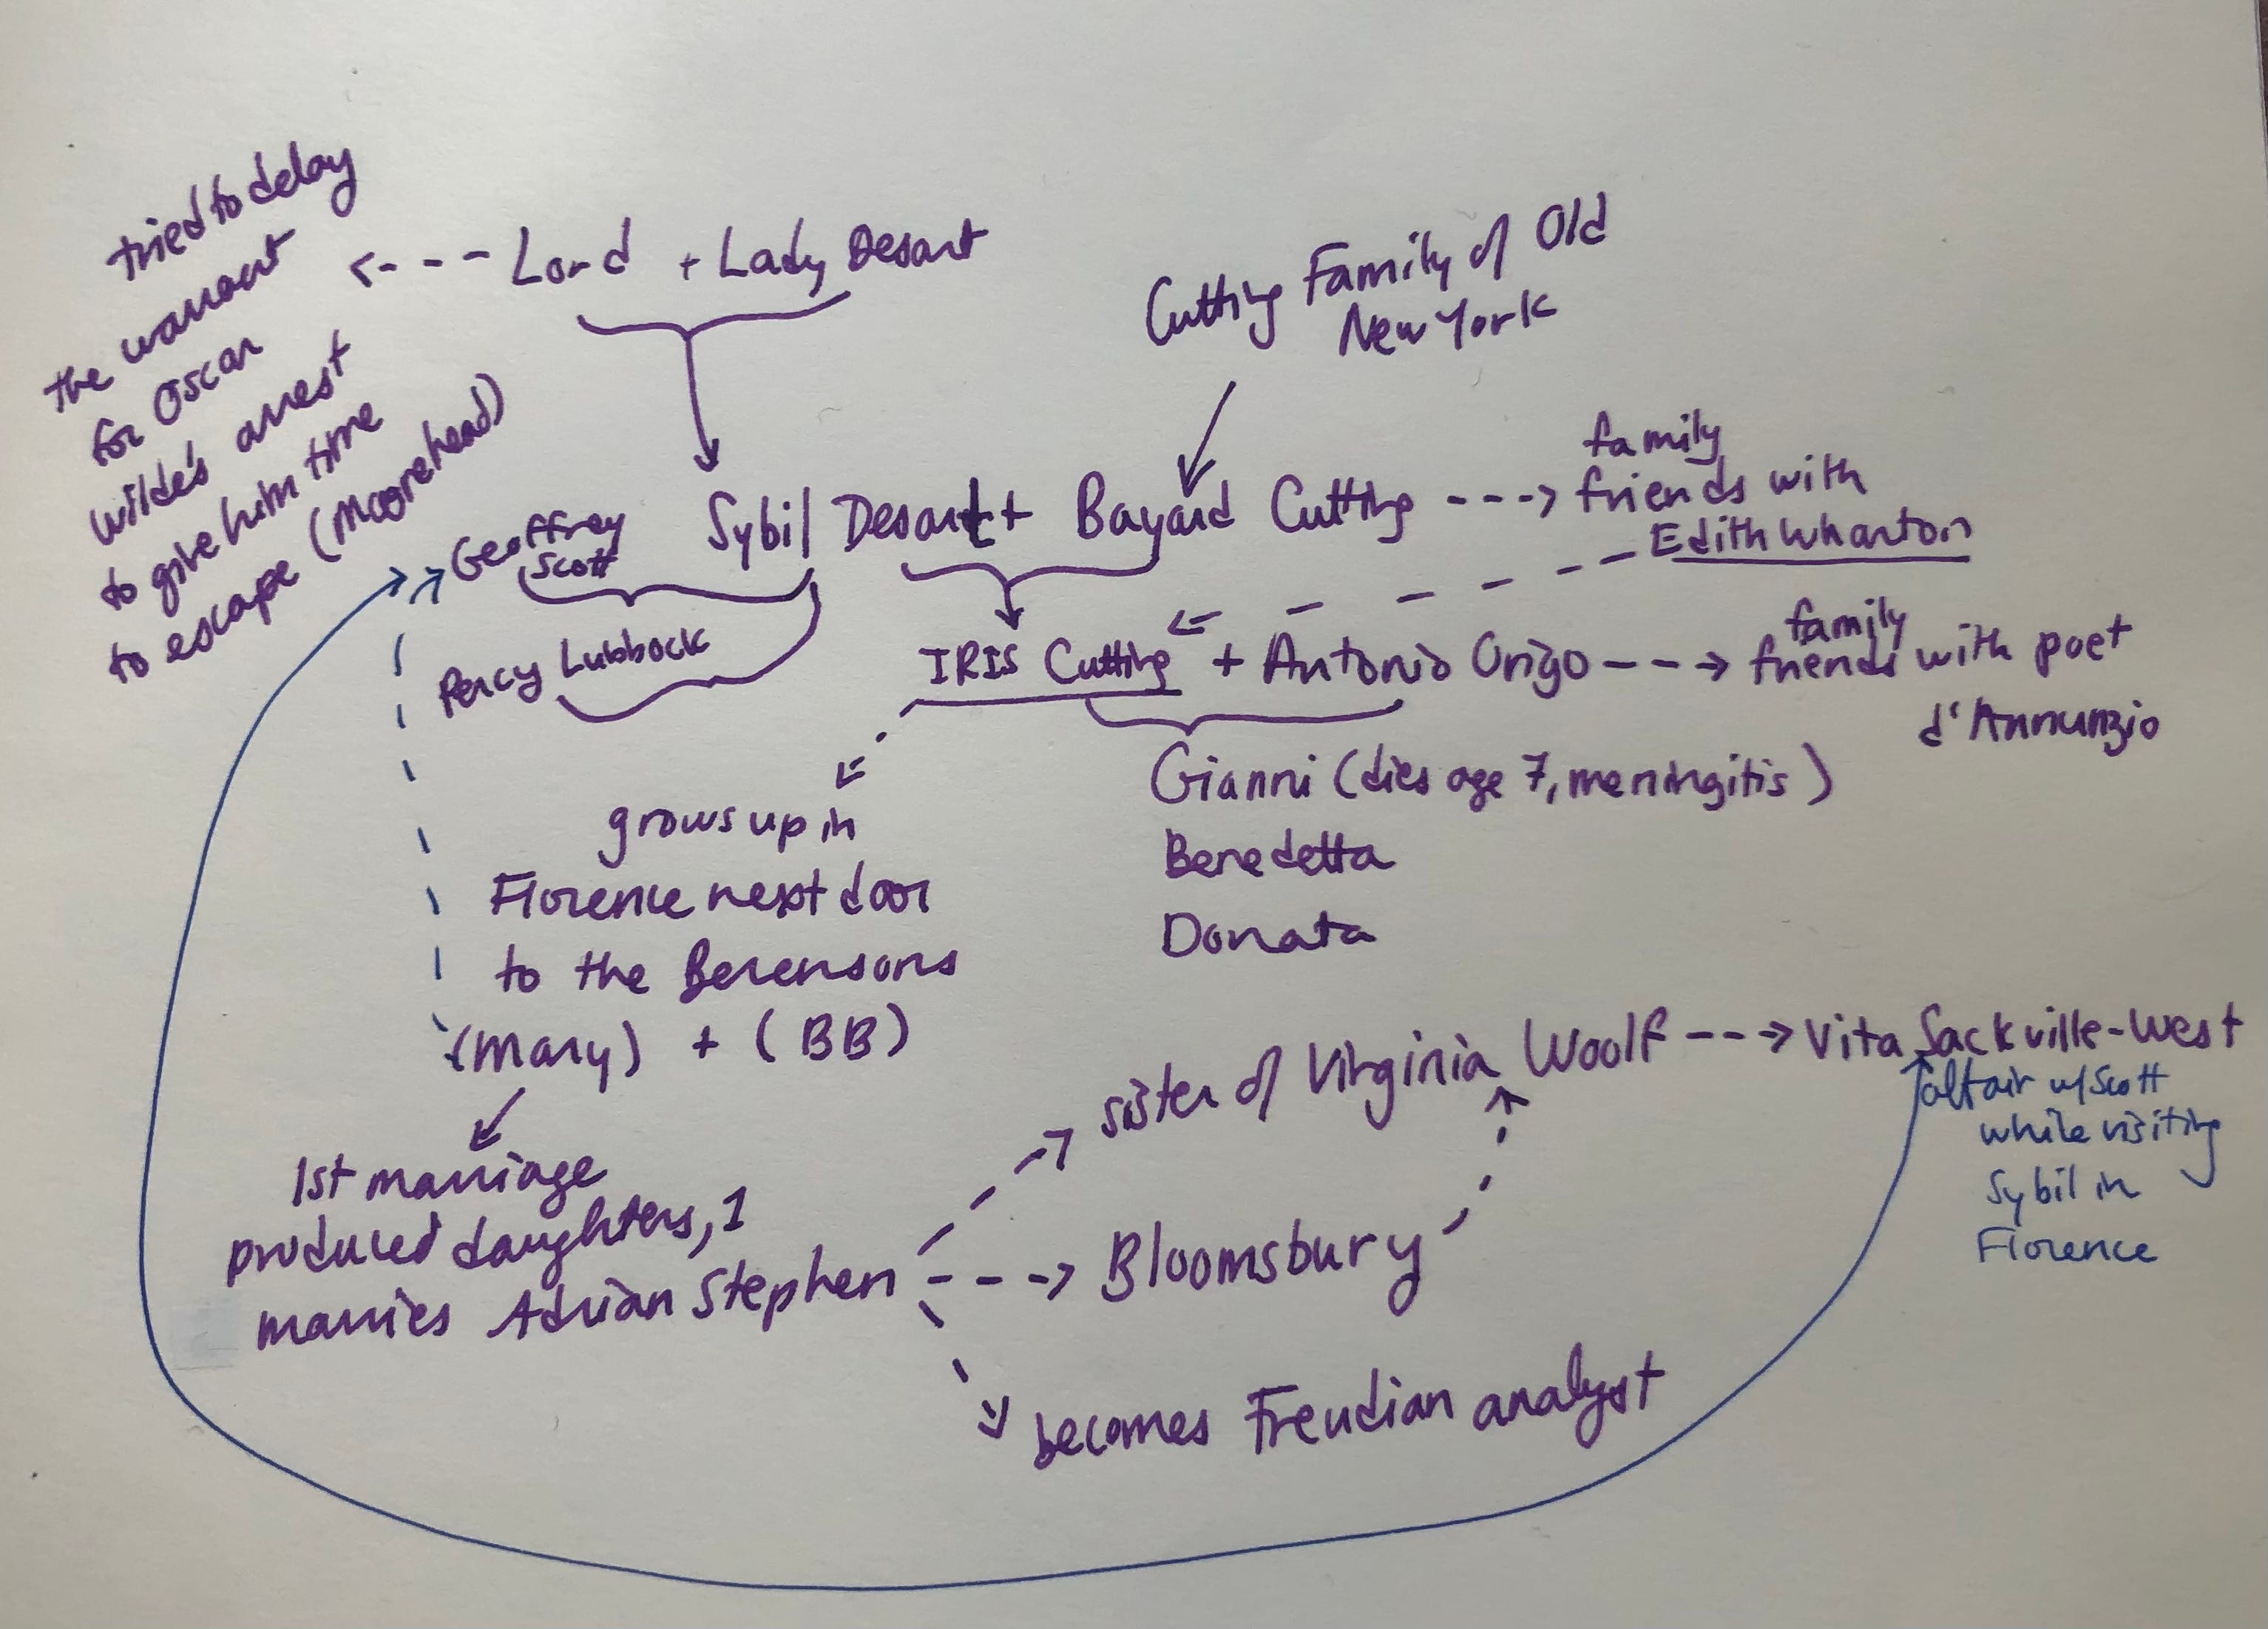 tried to delay
the warrant
for Oscar
Wilde's arrest
to give him time
to escape (Moorehead)
Lord + Lady Desart
Cutting Family of Old
New York
Geoffrey
Scott
Percy Lubbock
Sybil Desart + Bayard Cutting
family
friends with
Edith Wharton
IRIS Cutting + Antonio Origo
family
friends with poet
d'Annunzio
Gianni (dies age 7, meningitis)
Benedetta
Donata
grows up in
Florence next door
to the Berensons
(Mary) + (BB)
1st marriage
produced daughters, 1
marries Adrian Stephen
sister of Virginia Woolf
Vita Sackville-West
affair w/ Scott
while visiting
Sybil in
Florence
Bloomsbury
becomes Freudian analyst